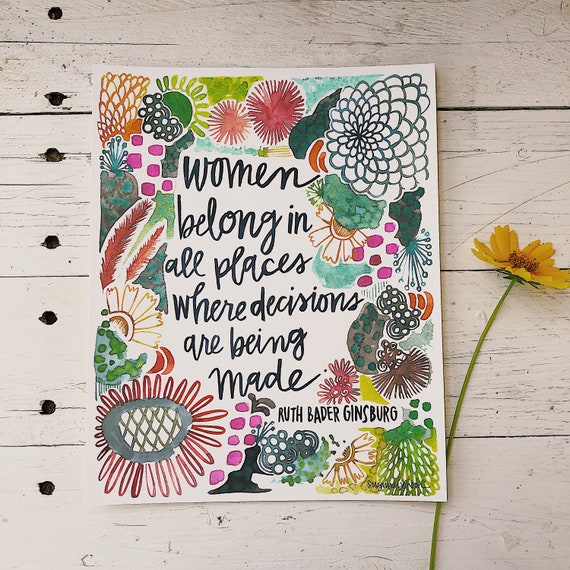 women
belong in
all places
where decisions
are being
made
RUTH BADER GINSBURG